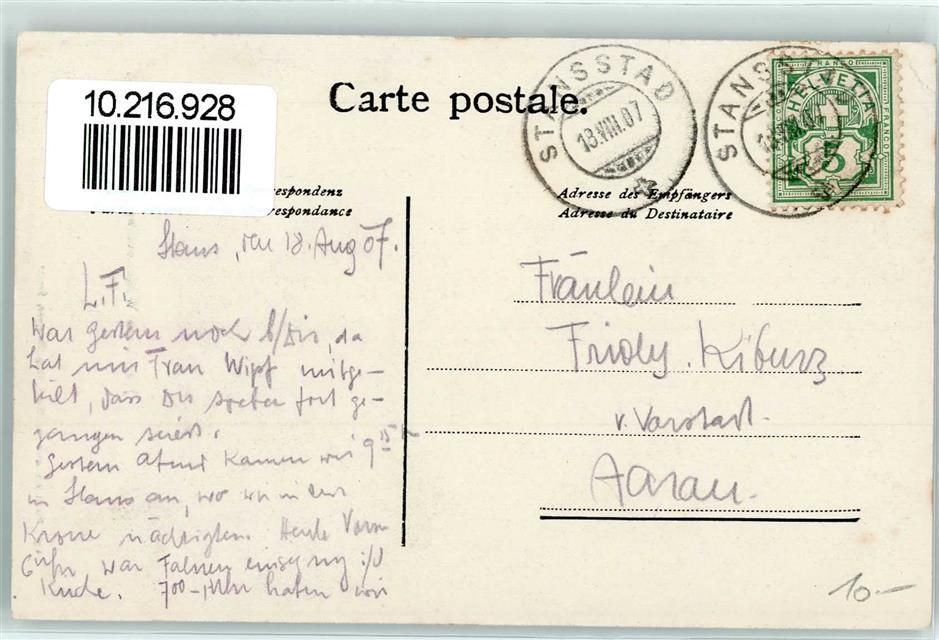 10.216.928
Carte postale.
STANSSTAD
18.VIII.07
STANSSTAD
FRANCO
HELVETIA
FRANCO
5
respondenz
respondance
Adresse des Empfängers
Adresse du Destinataire
Stans, den 18. Aug 07.
L. F.
War gestern noch b/Dir, da
hat mir Frau Wipf mitge-
teilt, dass Du soeben fort ge-
gangen seiest.
Gestern Abend kamen wir 9 15
in Stans an, wo wir in der
Krone nächtigten. Heute Vorm
6 Uhr war Fahnen
700 Uhr hatten wir
Fräulein
Fridy. Kiburz
v. Vorstadt.
Aarau.
10.-